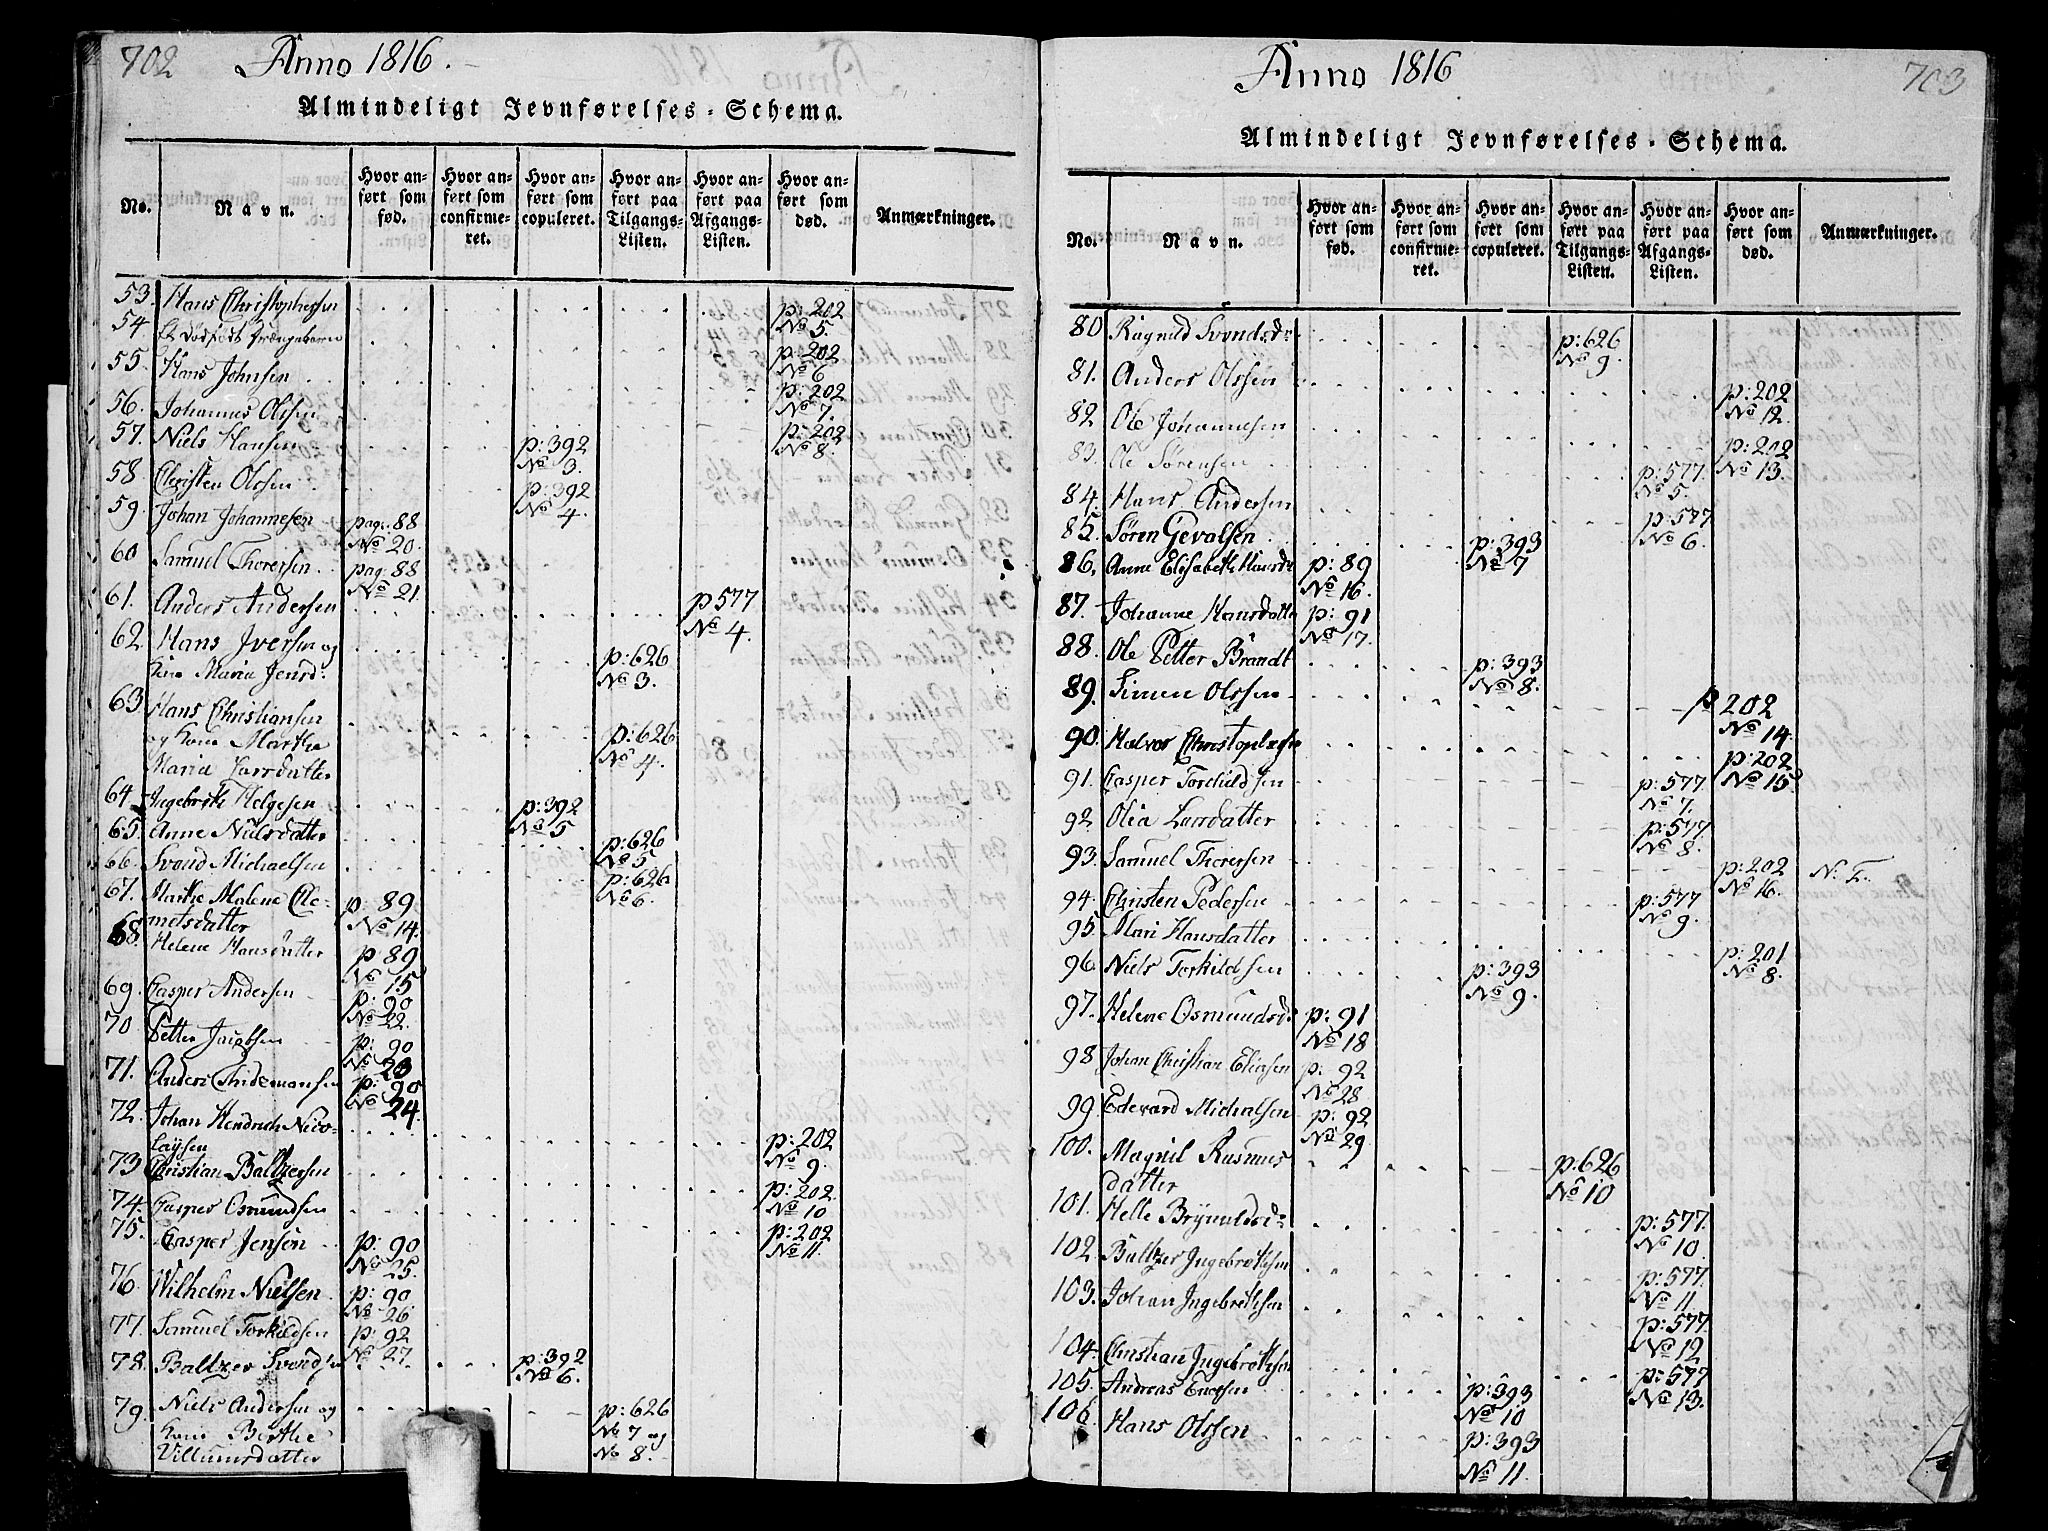 702 Anno 1816.
Almindeligt Jevnførelses-Schema.
No. Navn. Hvor anført som fød. Hvor anført som confirmeret. Hvor anført som copuleret. Hvor anført paa Tilgangs-Listen. Hvor anført paa Afgangs-Listen. Hvor anført som død. Anmærkninger.
53. Hans Christophersen p: 202 No 5.
54 Et dødfødt Drængebarn p: 202 No 6
55. Hans Johnsen p: 202 No 7.
56. Johannes Olssen p: 202 No 8.
57. Niels Hansen p: 392 No 3.
58 Christen Olssen p: 392 No 4.
59. Johan Johannesen pag: 88 No 20.
60 Samuel Thoresen pag: 88 No 21.
61. Anders Andersen p 577 No 4.
62. Hans Iversen og p: 626
kone Maria Jensd: No 3.
63 Hans Christiansen
og kone Marthe p: 626
Maria Larsdatter No 4.
64 Ingebrеth Helgesen p: 392 No 5
65. Anne Nielsdatter p: 626 No 5
66. Svend Michaelsen p: 626 No 6.
67. Marthe Malene Cle- p: 89
metsdatter No 14.
68. Helene Hansdatter p: 89 No 15
69. Casper Andersen p: 90 No 22.
70 Petter Jacobsen p: 90 No 23
71. Anders Andersen p: 90 No 24.
72. Johan Hendrich Nico-
laysen p: 202 No 9.
73 Christian Baltzersen p: 202. No 10
74. Casper Osmundsen p: 202 No 11.
75. Casper Jensen p: 90 No 25.
76. Wilhelm Nielsen p: 90 No 26
77. Samuel Torkildsen p: 92 No 27.
78. Baltzer Svendsen p: 392 No 6.
79 Niels Andersen og p: 626
kone Berthe No 7 og
Villumsdatter No 8.
Anno 1816 703
Almindeligt Jevnførelses-Schema.
No. Navn. Hvor anført som fød. Hvor anført som confirmeret. Hvor anført som copuleret. Hvor anført paa Tilgangs-Listen. Hvor anført paa Afgangs-Listen. Hvor anført som død. Anmærkninger.
80 Ragnild Svendsd: p: 626 No 9.
81. Anders Olssen p: 202 No 12.
82 Ole Johannesen p: 202 No 13.
83. Ole Sørensen p: 577 No 5.
84. Hans Andersen p: 577 No 6.
85. Søren Gevalsen p: 393 No 7
86. Anne Elisabeth Hansd: p: 89 No 16.
87. Johanne Hansdatter p: 91 No 17.
88. Ole Petter Brandt p: 393 No 8.
89. Simen Olssen p 202 No 14.
90. Halvor Christophersen p: 202 No 15.
91. Casper Torkildsen p: 577. No 7.
92. Olia Larsdatter p: 577. No 8.
93. Samuel Thoresen p: 202 No 16. N. T.
94. Christen Pedersen p: 577 No 9.
95. Mari Hansdatter p: 201 No 8.
96. Niels Torkildsen p: 393 No 9.
97. Helene Osmundsd: p: 91 No 18
98 Johan Christian Eliasen p: 92 No 28
99 Edevard Michalsen p: 92 No 29
100. Magnil Rasmus
datter p: 626 No 10
101. Helle Brynildsd: p: 577. No 10.
102. Baltzer Ingebrethsen p: 577. No 11
103. Johan Ingebrethsen p: 577. No 12
104. Christian Ingebrethsen p: 577 No 13.
105. Andreas Ericsen p: 393 No 10
106. Hans Olssen p: 393 No 11.